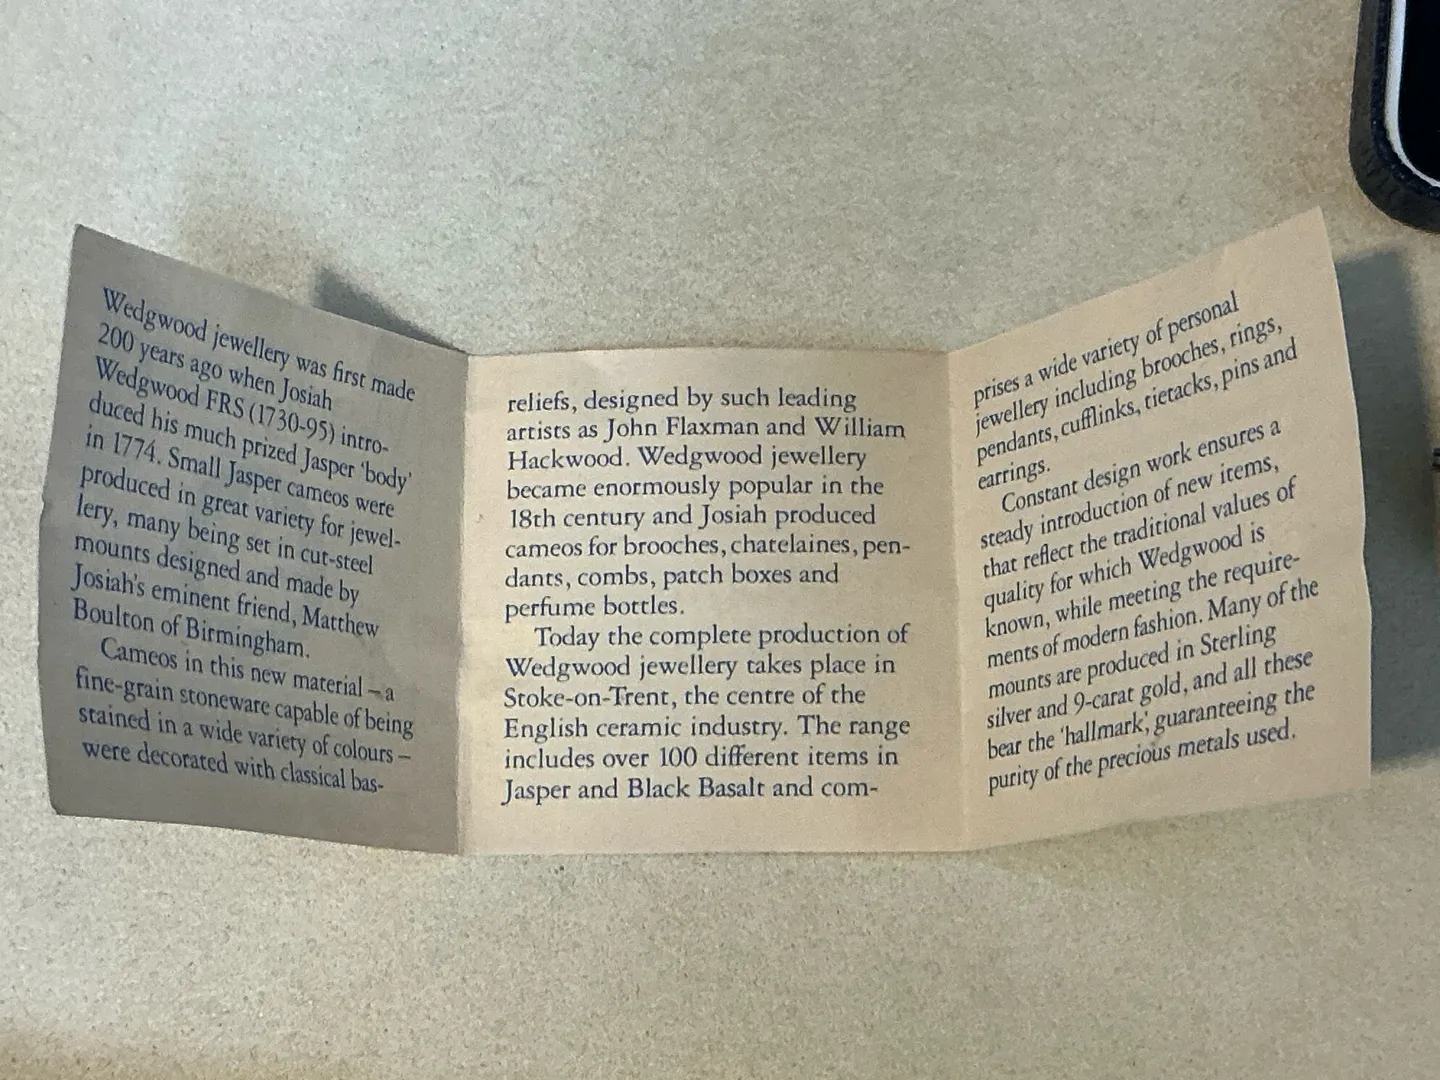 Wedgwood jewellery was first made
200 years ago when Josiah
Wedgwood FRS (1730-95) intro-
duced his much prized Jasper 'body'
in 1774. Small Jasper cameos were
produced in great variety for jewel-
lery, many being set in cut-steel
mounts designed and made by
Josiah's eminent friend, Matthew
Boulton of Birmingham.
Cameos in this new material – a
fine-grain stoneware capable of being
stained in a wide variety of colours –
were decorated with classical bas-
reliefs, designed by such leading
artists as John Flaxman and William
Hackwood. Wedgwood jewellery
became enormously popular in the
18th century and Josiah produced
cameos for brooches, chatelaines, pen-
dants, combs, patch boxes and
perfume bottles.
Today the complete production of
Wedgwood jewellery takes place in
Stoke-on-Trent, the centre of the
English ceramic industry. The range
includes over 100 different items in
Jasper and Black Basalt and com-
prises a wide variety of personal
jewellery including brooches, rings,
pendants, cufflinks, tietacks, pins and
earrings.
Constant design work ensures a
steady introduction of new items,
that reflect the traditional values of
quality for which Wedgwood is
known, while meeting the require-
ments of modern fashion. Many of the
mounts are produced in Sterling
silver and 9-carat gold, and all these
bear the 'hallmark', guaranteeing the
purity of the precious metals used.